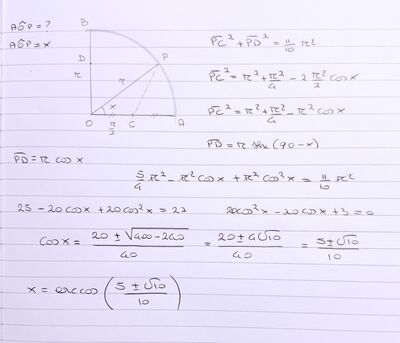 AÔP = ?
AÔP = x
B
D
P
r
r
x
O
r/2
C
A
PC² + PD² = 11/10 r²
PC² = r² + r²/4 - 2 r²/2 cos x
PC² = r² + r²/4 - r² cos x
PD = r sen (90 - x)
PD = r cos x
5/4 r² - r² cos x + r² cos² x = 11/10 r²
25 - 20 cos x + 20 cos² x = 22
20 cos² x - 20 cos x + 3 = 0
cos x = (20 ± √(400 - 240))/40 = (20 ± 4√10)/40 = (5 ± √10)/10
x = arccos ((5 ± √10)/10)